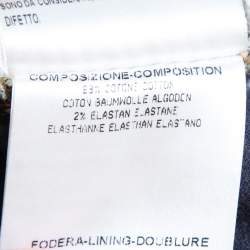 SONO DA CONSIDERA
DIFETTO.
COMPOSIZIONE-COMPOSITION
COTONE COTTON
COTON BAUMWOLLE ALGODON
2% ELASTAN ELASTANE
ELASTHANNE ELASTHAN ELASTANO
FODERA-LINING-DOUBLURE